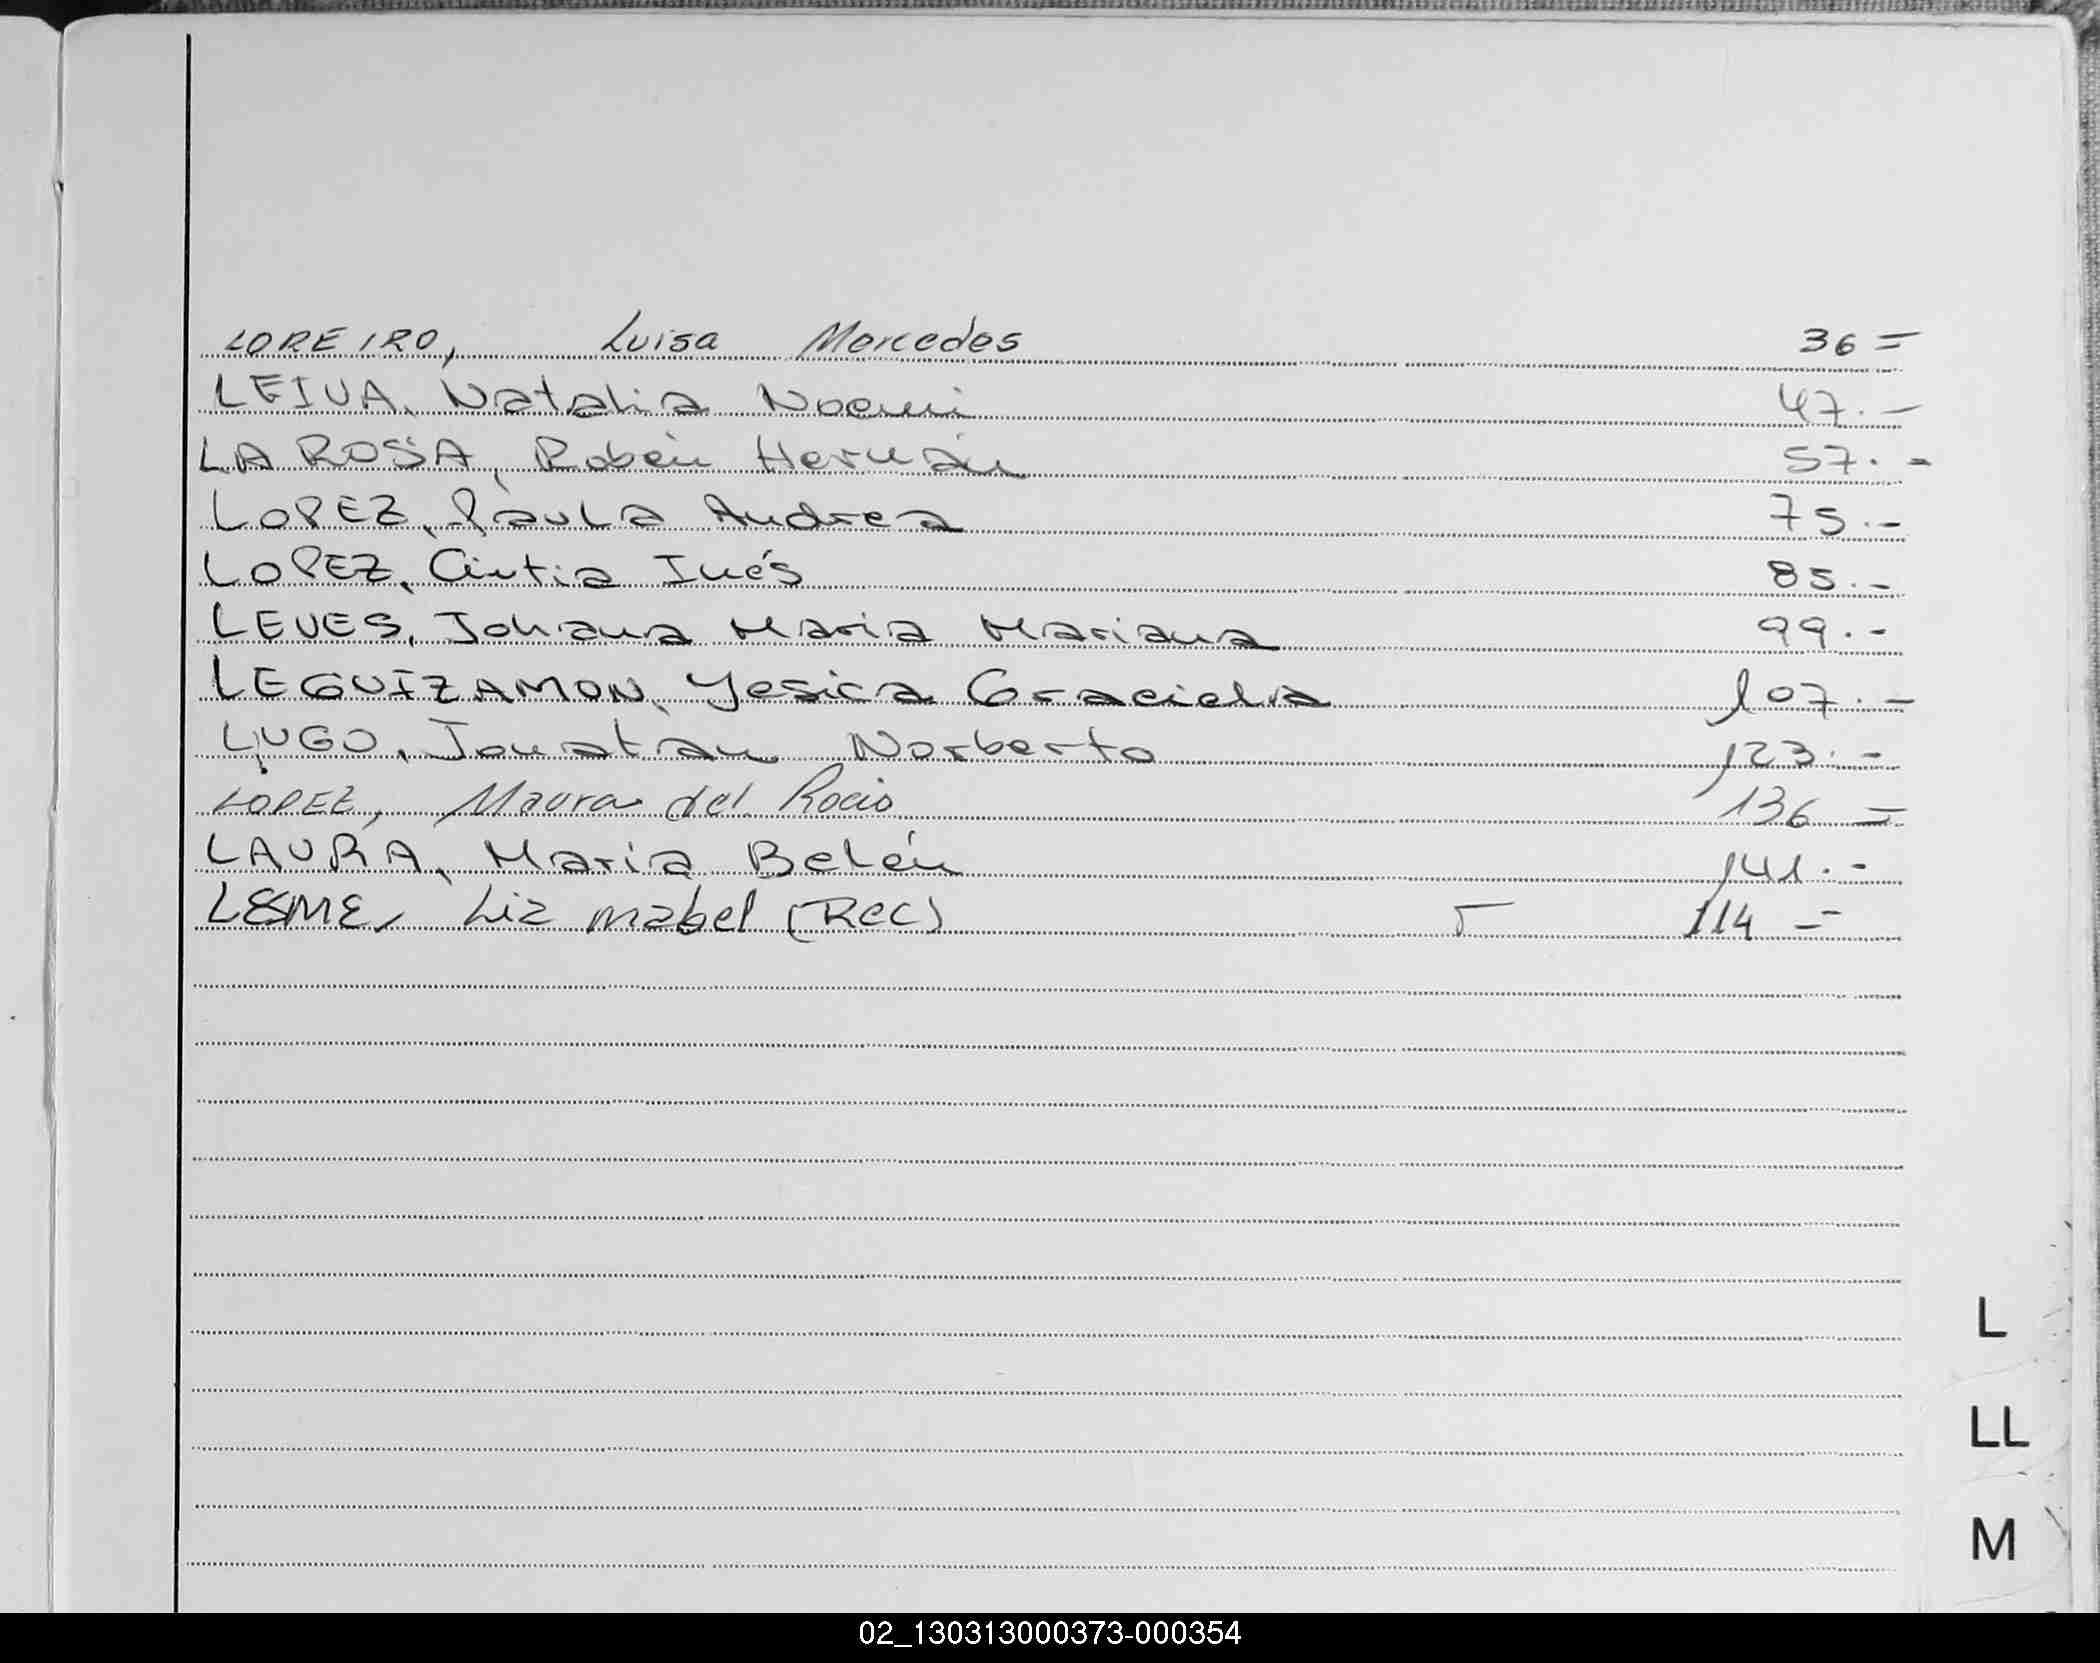 LOREIRO, Luisa Mercedes 36 =
LEIVA, Natalia Noemi 47.-
LA ROSA, Rubén Hernán 57.-
LOPEZ, Paula Andrea 75.-
LOPEZ, Cintia Inés 85.-
LEVES, Johana Maria Mariana 99.-
LEGUIZAMON, Yesica Graciela 107.-
LUGO, Jonatan Norberto 123.-
LOPEZ, Maura del Rocio 136 =
LAURA, María Belén 141.-
LESME, Liz mabel (Rec) 114 =
L
LL
M
02_130313000373-000354